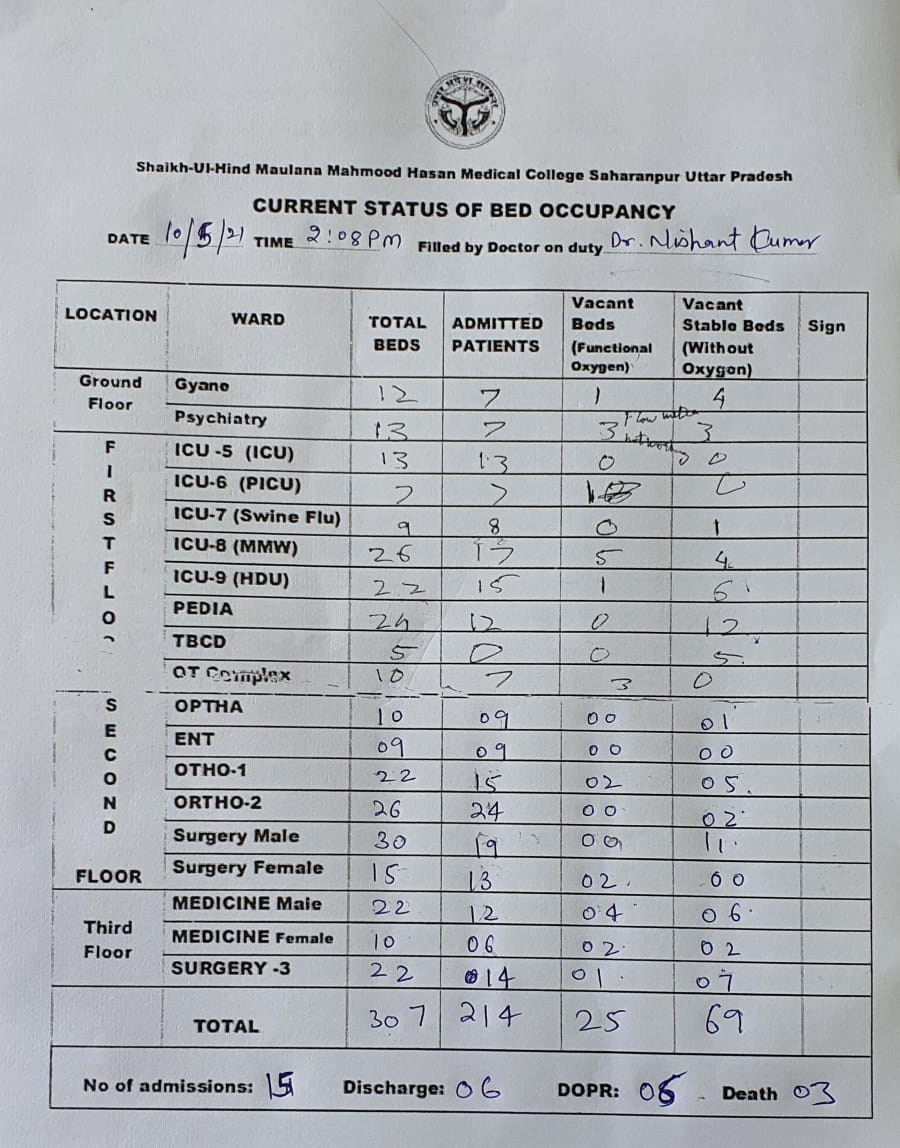 उत्तर प्रदेश सरकार
Shaikh-Ul-Hind Maulana Mahmood Hasan Medical College Saharanpur Uttar Pradesh
CURRENT STATUS OF BED OCCUPANCY
DATE 10/5/21 TIME 2:08PM Filled by Doctor on duty Dr. Nishant Kumar
LOCATION WARD TOTAL BEDS ADMITTED PATIENTS Vacant Beds (Functional Oxygen) Vacant Stable Beds (Without Oxygen) Sign
Ground Floor Gyane 12 7 1 4
Psychiatry 13 7 3 Flow meter not working 3
FIRST FLOO
ICU -5 (ICU) 13 13 0 0
ICU-6 (PICU) 7 7 0
ICU-7 (Swine Flu) 9 8 0 1
ICU-8 (MMW) 26 17 5 4
ICU-9 (HDU) 22 15 1 6
PEDIA 24 12 0 12
TBCD 5 0 0 5
OT Complex 10 7 3 0
SECOND FLOOR
OPTHA 10 09 00 01
ENT 09 09 00 00
OTHO-1 22 15 02 05.
ORTHO-2 26 24 00 02
Surgery Male 30 19 00 11
Surgery Female 15 13 02. 00
Third Floor MEDICINE Male 22 12 04 06
MEDICINE Female 10 06 02 02
SURGERY -3 22 014 01 07
TOTAL 307 214 25 69
No of admissions: 15 Discharge: 06 DOPR: 05 Death 03